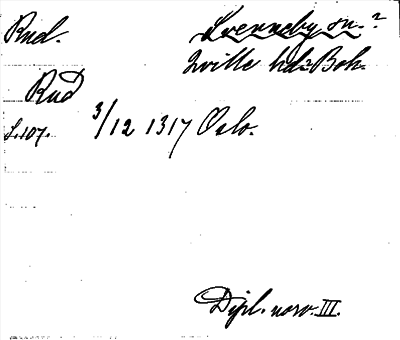 Rud. Svenneby sn.?
Tville hd: Boh.
Rud
s. 107. 3/12 1317 Oslo.
Dipl. norv. III.